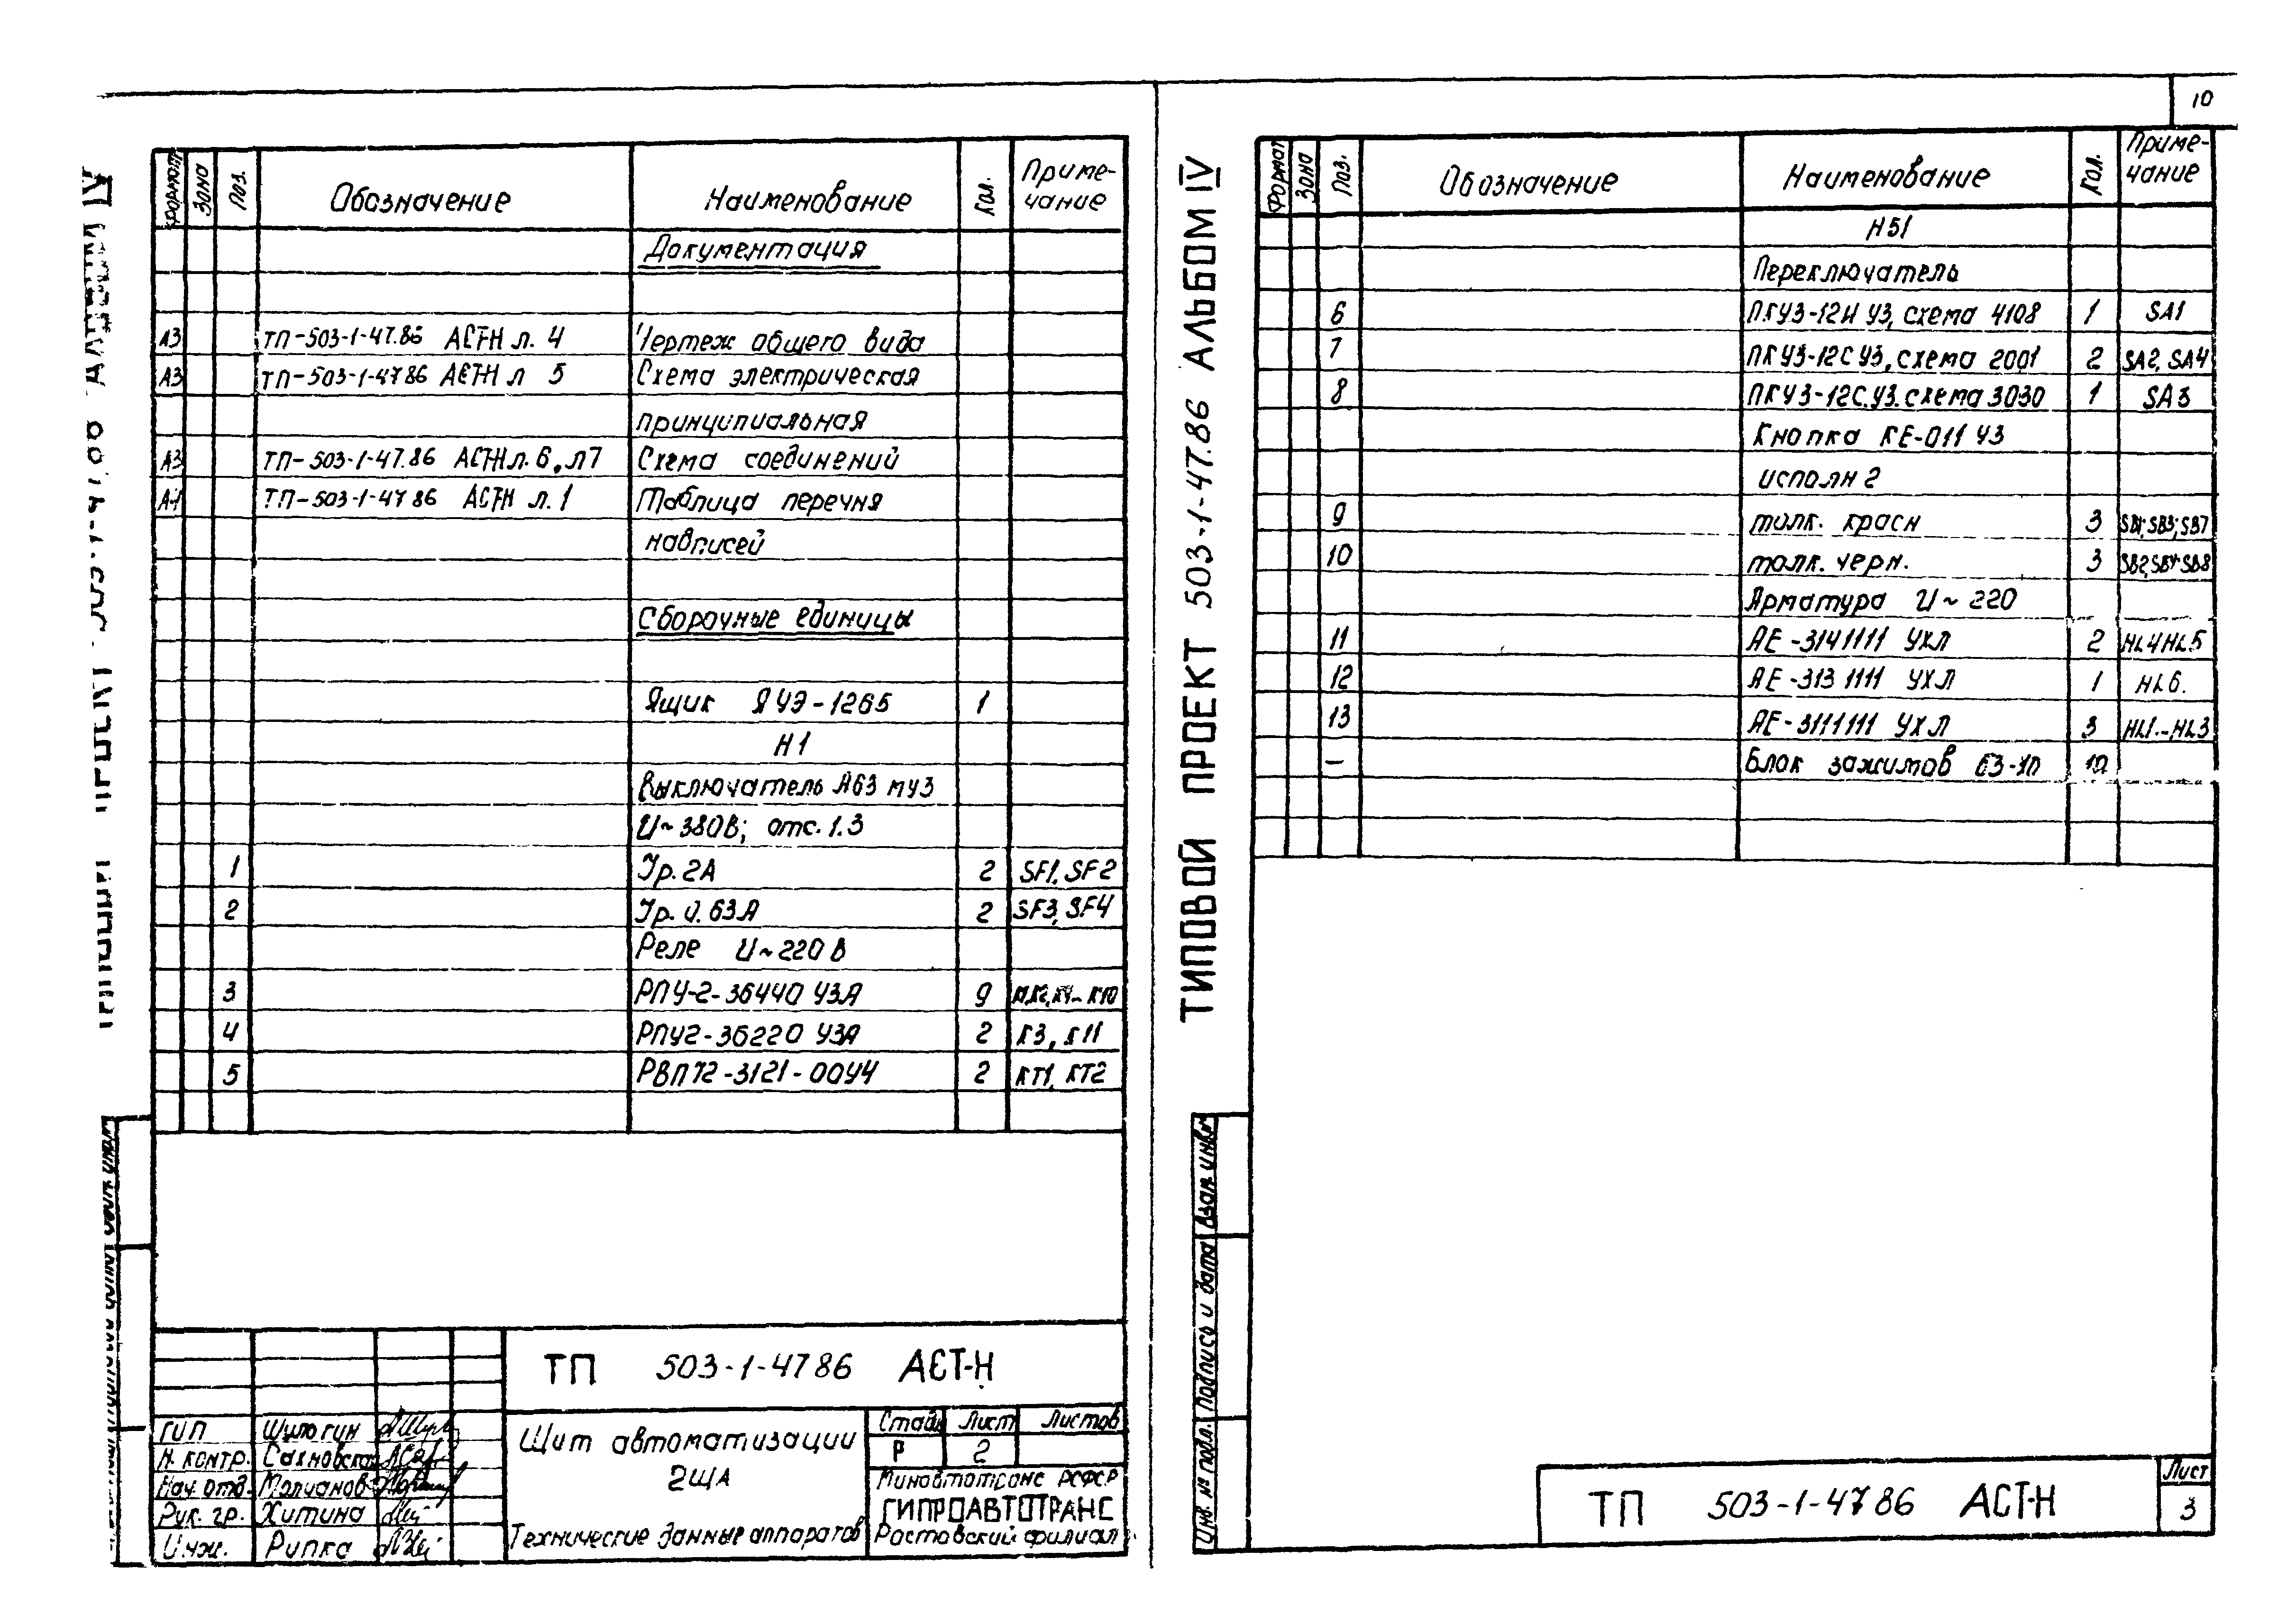 10
Формат Зона Поз. Обозначение Наименование Кол. Приме-
чание
Документация
А3 ТП-503-1-47.86 АСТ-Н л. 4 Чертеж общего вида
А3 ТП-503-1-4786 АСТ-Н л 5 Схема электрическая
принципиальная
А3 ТП-503-1-47.86 АСТ-Н л. 6, л7 Схема соединений
А4 ТП-503-1-4786 АСТ-Н л. 1 Таблица перечня
надписей
Сборочные единицы
Ящик ЯУЭ-1265 1
Н1
Выключатель А63 МУ3
U~380В; отс. 1.3
1 Iр. 2А 2 SF1, SF2
2 Iр. 0.63А 2 SF3, SF4
Реле U~220 В
3 РПУ-2-36440 У3А 9
4 РПУ2-36220 У3А 2 К3, К11
5 РВП72-3121-00У4 2 КТ1, КТ2
ТП 503-1-4786 АСТ-Н
ГИП Шулогин
Н. контр. Сахновская
Нач. отд. Молчанов
Рук. гр. Хитина
Инж. Рипка
Щит автоматизации
2ЩА
Технические данные аппаратов
Лист Листов
Р 2
Минавтотранс РСФСР
ГИПРОАВТОТРАНС
Ростовский филиал
ТИПОВОЙ ПРОЕКТ 503-1-47.86 АЛЬБОМ IV
Формат Зона Поз. Обозначение Наименование Кол. Приме-
чание
Н51
Переключатель
6 ПКУ3-12И У3, схема 4108 1 SA1
7 ПКУ3-12С У3, схема 2001 2 SA2, SA4
8 ПКУ3-12С.У3. схема 3030 1 SA3
Кнопка КЕ-011 У3
исполн 2
9 толк. красн 3 SB1; SB3; SB7
10 толк. черн. 3 SB2, SB4 SB8
Арматура U~220
11 АЕ-3141111 УХЛ 2 HL4 HL5
12 АЕ-3131111 УХЛ 1 HL6.
13 АЕ-3111111 УХЛ 3 HL1.-HL3
— Блок зажимов 10
Инв. № подл. Подпись и дата Взам. инв. №
ТП 503-1-4786 АСТ-Н
Лист
3